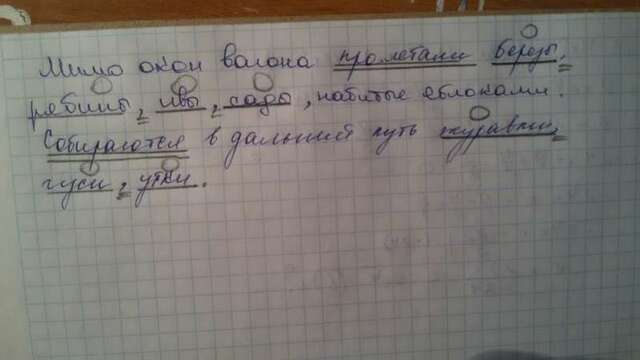 Мимо окон вагона пролетали березы,
рябины, ивы, сады, набитые яблоками.
Собираются в дальний путь журавли,
гуси, утки.